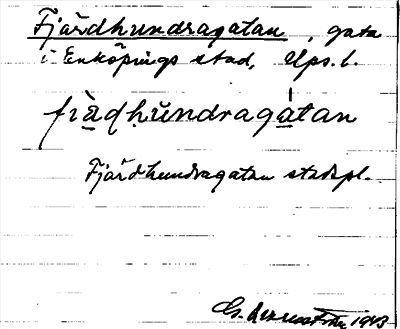 Fjärdhundragatan, gata
i Enköpings stad, Ups. l.
fià̱dḥŭndragá̱tan
Fjärdhundragatan stadspl.
1943